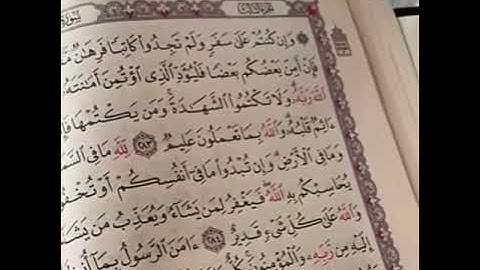 الجزء الثالث
سورة
۞ وَإِن كُنتُمْ عَلَىٰ سَفَرٍ وَلَمْ تَجِدُوا۟ كَاتِبًا فَرِهَٰنٌ
فَإِنْ أَمِنَ بَعْضُكُم بَعْضًا فَلْيُؤَدِّ ٱلَّذِى ٱؤْتُمِنَ أَمَٰنَتَهُۥ
ٱللَّهَ رَبَّهُۥ وَلَا تَكْتُمُوا۟ ٱلشَّهَٰدَةَ وَمَن يَكْتُمْهَا
ءَاثِمٌ قَلْبُهُۥ وَٱللَّهُ بِمَا تَعْمَلُونَ عَلِيمٌ ٢٨٣ لِّلَّهِ مَا فِى
وَمَا فِى ٱلْأَرْضِ وَإِن تُبْدُوا۟ مَا فِىٓ أَنفُسِكُمْ أَوْ
يُحَاسِبْكُم بِهِ ٱللَّهُ فَيَغْفِرُ لِمَن يَشَآءُ وَيُعَذِّبُ مَن
وَٱللَّهُ عَلَىٰ كُلِّ شَىْءٍ قَدِيرٌ ٢٨٤ ءَامَنَ ٱلرَّسُولُ بِمَآ
إِلَيْهِ مِن رَّبِّهِۦ وَٱلْمُؤْمِنُونَ